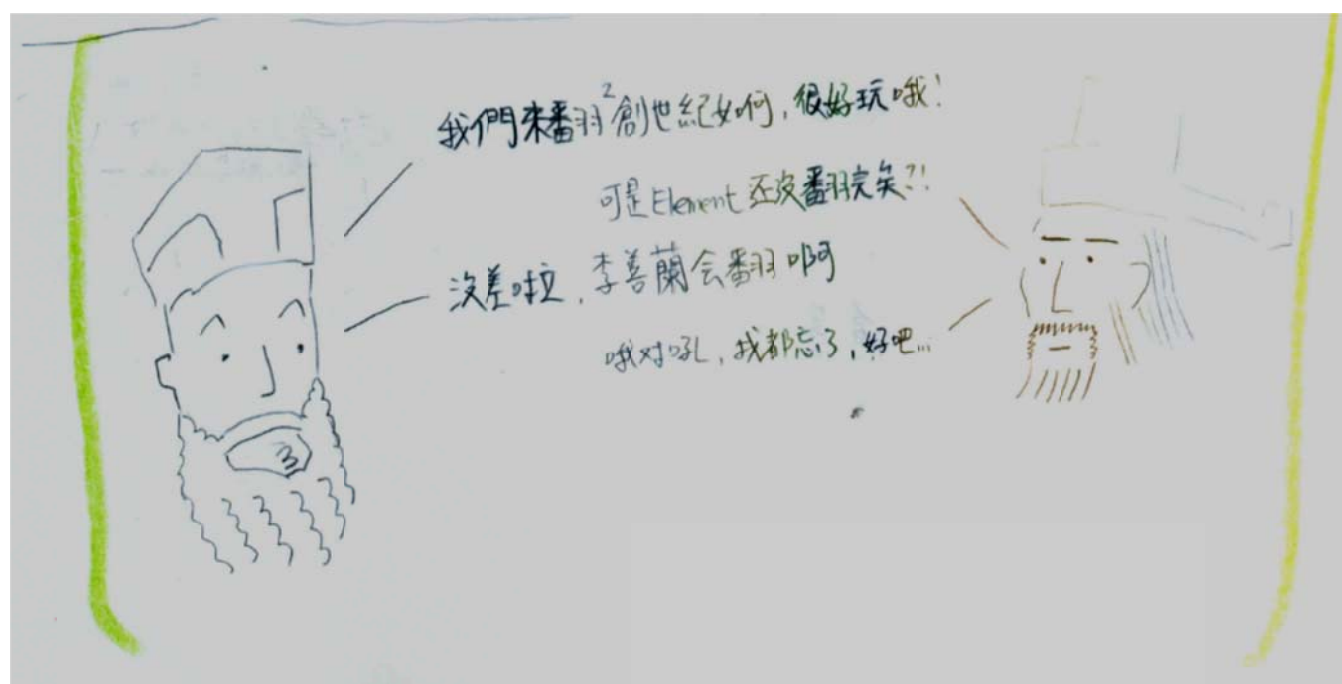 我們來翻²創世紀如何，很好玩哦！
可是Element还沒翻完矣?!
沒差啦，李善蘭会翻啊
哦对吼，我都忘了，好吧...